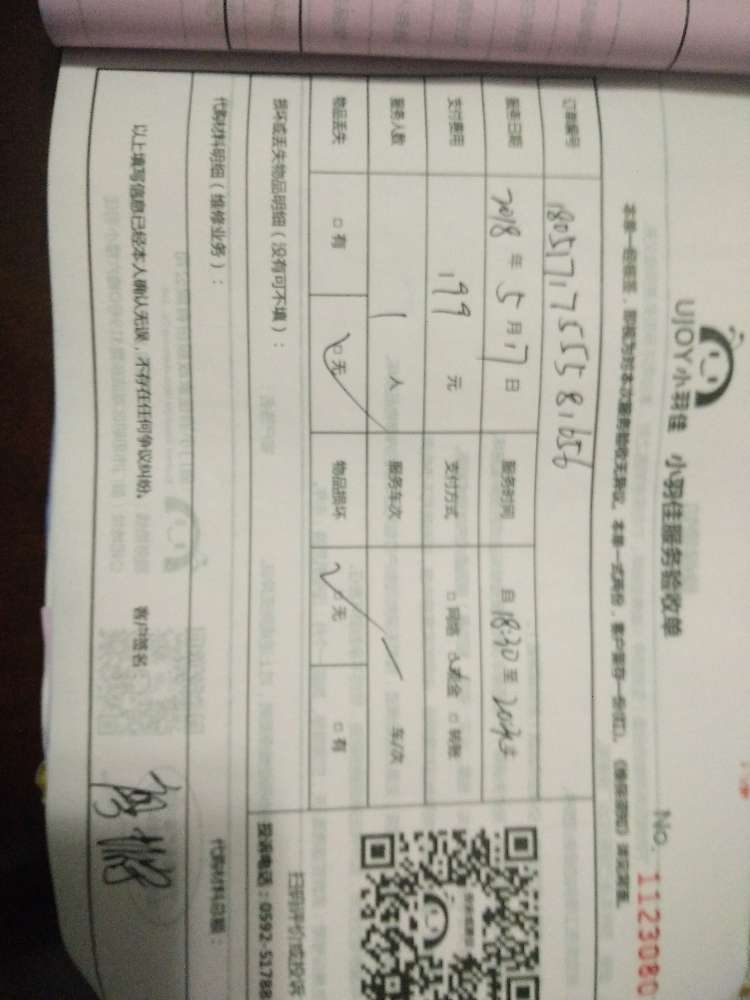 UJOY小羽佳 小羽佳服务验收单
No. 1123080
本单一经签署，即视为对本次服务验收无异议。本单一式两份，客户留存一份(红)。
订单编号 180517175558,656
服务日期 2018 年 5 月 17 日 服务时间 自 18:30 至
支付费用 199 元 支付方式 □ 网络 ☑ 现金 □ 转账
服务人数 1 人 服务车次 车/次
物品丢失 □ 有 ☑ 无 物品损坏 ☑ 无 □ 有
损坏或丢失物品明细（没有可不填）：
扫码评价或投诉
投诉电话：0592-51788
代购材料明细（维修业务）： 代购材料总额：
以上填写信息已经本人确认无误，不存在任何争议纠纷。 客户签名：